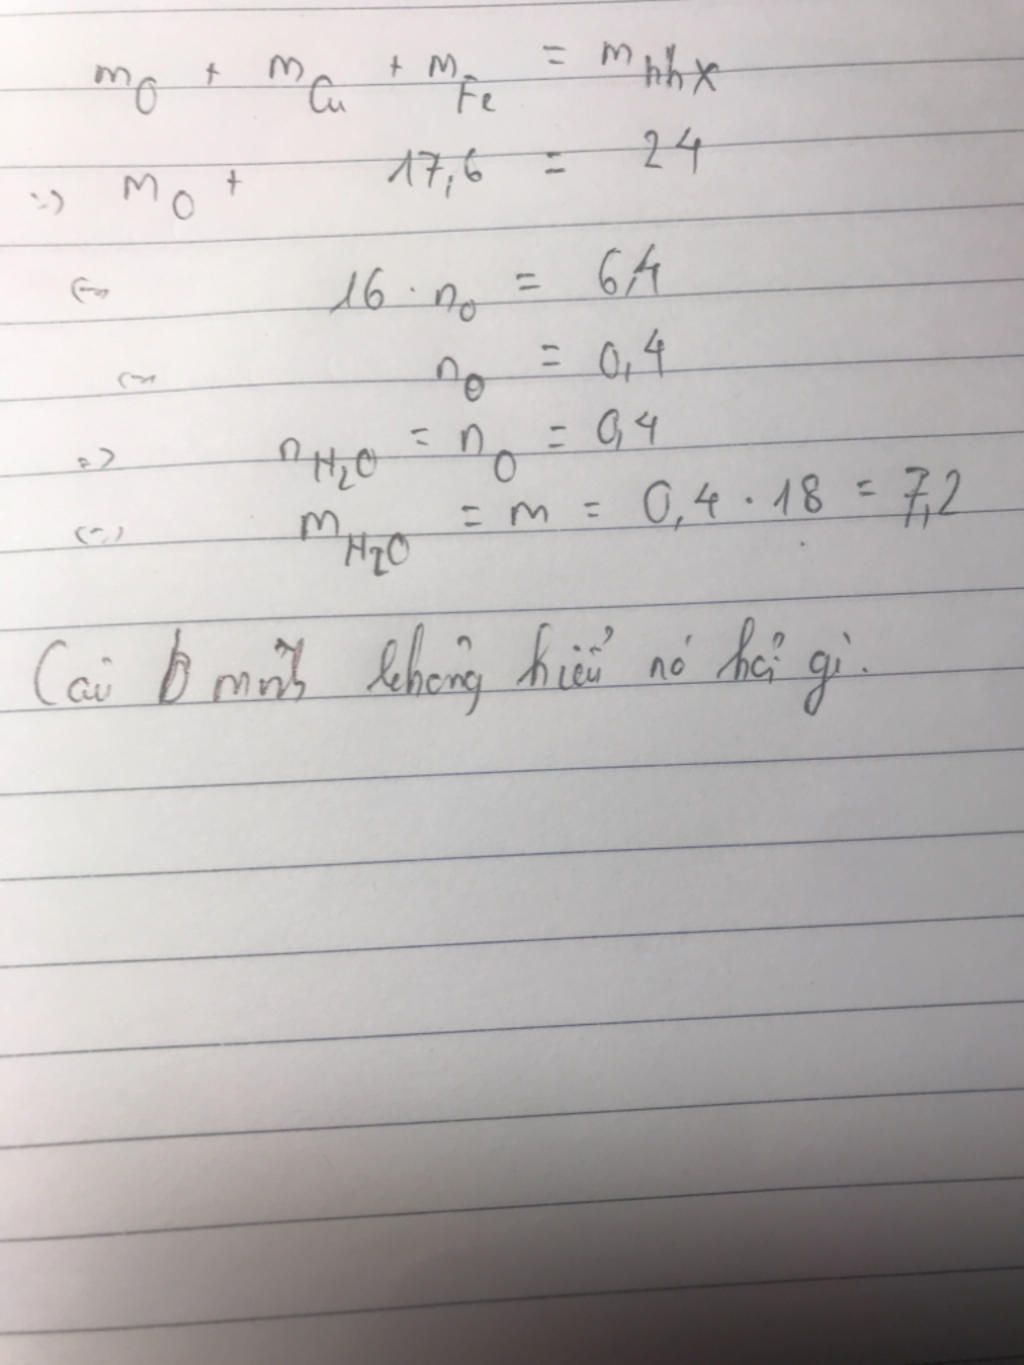 mO + mCu + mFe = mhhX
=> mO + 17,6 = 24
<=> 16 . nO = 6,4
<=> nO = 0,4
=> nH2O = nO = 0,4
<=> mH2O = m = 0,4 . 18 = 7,2
Cái b mình không hiểu nó hỏi gì.